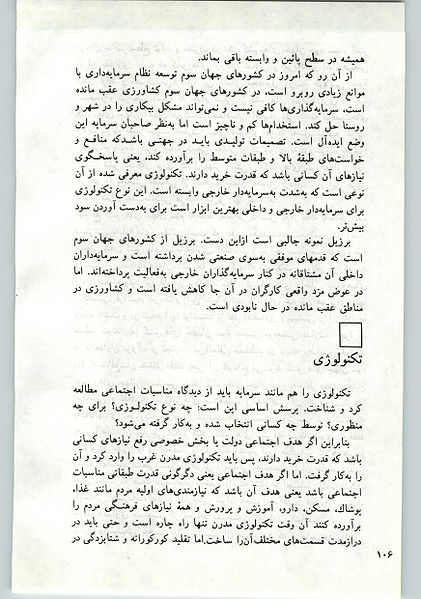 همیشه در سطح پائین و وابسته باقی بماند.
از آن رو که امروز در کشورهای جهان سوم توسعه نظام سرمایه‌داری با
موانع زیادی روبرو است، در کشورهای جهان سوم کشاورزی عقب مانده
است، سرمایه‌گذاری‌ها کافی نیست و نمی‌تواند مشکل بیکاری را در شهر و
روستا حل کند. استخدام‌ها کم و ناچیز است اما به‌نظر صاحبان سرمایه این
وضع ایده‌آل است. تصمیمات تولیدی باید در جهتی باشدکه منافع و
خواست‌های طبقهٔ بالا و طبقات متوسط را برآورده کند، یعنی پاسخگوی
نیازهای آن کسانی باشد که قدرت خرید دارند. تکنولوژی معرفی شده از آن
نوعی است که به‌شدت به‌سرمایه‌دار خارجی وابسته است. این نوع تکنولوژی
برای سرمایه‌دار خارجی و داخلی بهترین ابزار است برای به‌دست آوردن سود
بیش‌تر.
برزیل نمونه جالبی است ازاین دست. برزیل از کشورهای جهان سوم
است که قدمهای موفقی به‌سوی صنعتی شدن برداشته است و سرمایه‌داران
داخلی آن مشتاقانه در کنار سرمایه‌گذاران خارجی به‌فعالیت پرداخته‌اند. اما
در عوض مزد واقعی کارگران در آن جا کاهش یافته است و کشاورزی در
مناطق عقب مانده در حال نابودی است.
تکنولوژی
تکنولوژی را هم مانند سرمایه باید از دیدگاه مناسبات اجتماعی مطالعه
کرد و شناخت. پرسش اساسی این است: چه نوع تکنولـوژی؟ برای چه
منظوری؟ توسط چه کسانی انتخاب شده و به‌کار گرفته می‌شود؟
بنابراین اگر هدف اجتماعی دولت یا بخش خصوصی رفع نیازهای کسانی
باشد که قدرت خرید دارند، پس باید تکنولوژی مدرن غرب را وارد کرد و آن
را به‌کار گرفت. اما اگر هدف اجتماعی یعنی دگرگونی قدرت طبقاتی مناسبات
اجتماعی باشد یعنی هدف آن باشد که نیازمندی‌های اولیه مردم مانند غذا،
پوشاك، مسکن، دارو، آموزش و پرورش و همهٔ نیازهای فرهنـگی مردم را
برآورده کنند آن وقت تکنولوژی مدرن تنها راه چاره است و حتی باید در
درازمدت قسمت‌های مختلف‌آن‌را ساخت.اما تقلید کورکورانه و شتابزدگی در
۱۰۶